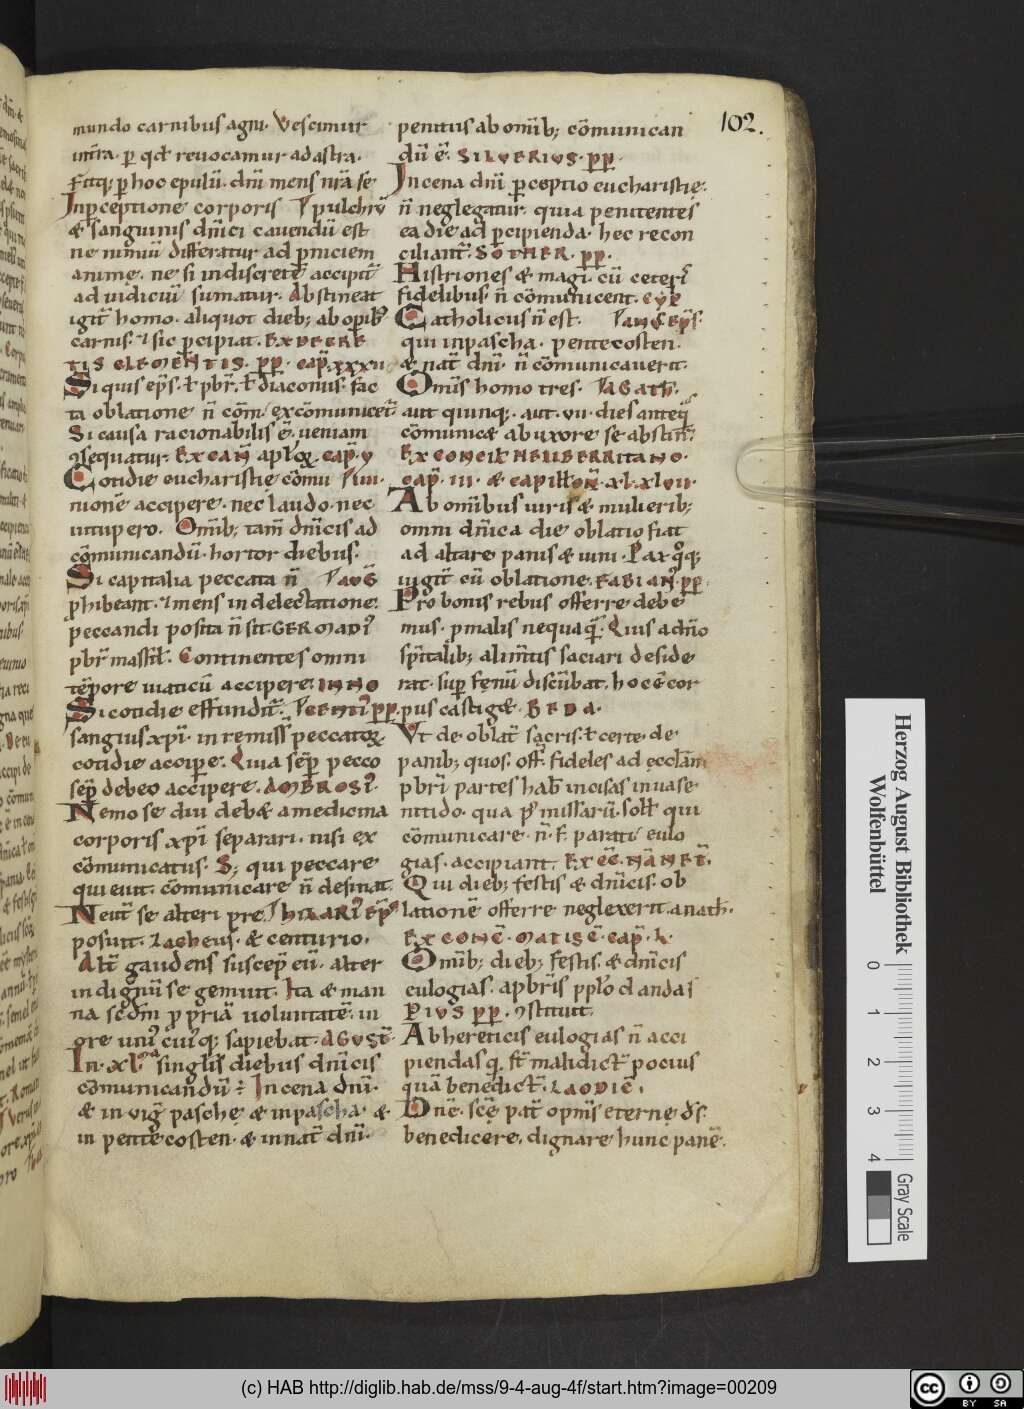 102.
mundo carnibus agni. Vescimur
int̄ra. ꝑ qd̄ reuocamur ad astra.
Fitq; ꝑ hoc epulū. dn̄i mens nr̄a se
Inꝑceptione corporis pulchrū
& sanguinis dn̄ici cauendū est
ne nimiū differatur ad ꝑniciem
anime. ne si indiscrete accipit̄
ad iudiciū sumatur. Abstineat
igit̄ homo. aliquot dieb; ab oꝑib;
carnis. & sic ꝑcipiat. EX DECRE
TIS CLEMENTIS. PP. CAP̄. XXXII
Si quis ep̄s. ł pbr̄. ł diaconus. fac
ta oblatione n̄ cōm̄. excōmunicet̄.
Si causa racionabilis ē. ueniam
ꝯsequatur. EX CAN̄ aplōꝝ. CAP̄. V
Cotidie eucharistie cōmu
nionē accipere. nec laudo. nec
uitupero. Omīb; tam̄ dn̄icis ad
cōmunicandū. hortor diebus.
Si capitalia peccata n̄ AUḠ
ꝓhibeant. & mens in delectatione
peccandi posita n̄ sit. GERMADI
pbr̄ massil̄. Continentes omni
tēpore uiaticū accipere. INNO
Si cotidie effundit̄. CENTI PP.
sanguis xp̄i. in remiss̄ peccatoꝝ.
cotidie accipe. Quia sēꝑ pecco
sēꝑ debeo accipere. AMBROSI.
Nemo se diu deb& a medicina
corporis xp̄i separari. nisi ex
cōmunicatus. S; qui peccare
quieuit. cōmunicare n̄ desinat.
Neut̄ se alteri pre HILARI EP̄S
posuit. Zacheus. & centurio.
Alt̄ gaudens suscep̄ eū. alter
indignū se gemuit. Ita & man
na scdm̄ ꝓpriā uoluntatē. in
ore uni cuiq; sapiebat. AGUST̄.
In. xl. singlis diebus dn̄icis
cōmunicandū ÷ In cena dn̄i.
& in uiḡ pasche & in pascha. &
in pentecosten. & in nat̄ dn̄i.
penitus ab omīb; cōmunican
dū ē. SILVERIUS. PP.
In cena dn̄i ꝑceptio eucharistie.
n̄ neglegatur. quia penitentes
ea die ad ꝑcipienda. hec recon
ciliant̄. SOTHER. PP.
Histriones & magi. cū ceteri
fidelibus. n̄ cōmunicent. CYP
Catholicus n̄ est. ANC EP̄S.
qui in pascha. pentecosten.
& nat̄ dn̄i. n̄ cōmunicauerit.
Omīs homo tres. AGATh.
aut quinq;. aut. vii. dies anteq̄
cōmunic& ab uxore se abstin̄.
EX CONCIL̄ NEUBERRITANO.
CAP̄. III. & CAPILLON̄. XL. XLVII.
Ab omībus uiris & mulierib;
omni dn̄ica die oblatio fiat
ad altare panis & uini. Pax q̄q;
uigit̄ cū oblatione. FABIAN̄. PP.
Pro bonis rebus offerre debe
mus. ꝓ malis nequaq̄. Quis a dn̄o
sp̄italib; alim̄tis saciari deside
rat. suꝑ fenū discūbat. hoc ē cor
pus castig&. BEDA.
Vt de oblat̄ sacris. ł certe. de
panib; quos. off̄. fideles ad ecclam̄
pbr̄i partes hab̄ incisas in uase
nitido. qua p̄ missarū. soll̄. qui
cōmunicare. n̄. F. parati eulo
gias. accipiant. EX CC̄. NANET̄.
Qui dieb; festis & dn̄icis. ob
lationē offerre neglexerit. anath̄.
EX CONC̄. MATISC̄. CAP̄. L.
Omīb; dieb; festis. & dn̄icis
eulogias. a pbr̄is pplo danda
PIUS PP. ꝯstituit.
Ab hereticis eulogias n̄ acci
piendas q̄. st̄ maledict̄ pocius
quā benedict̄. LAODIC̄.
Dn̄e. sc̄e. pat̄ om̄ps eterne ds̄.
benedicere. dignare hunc panē.
Herzog August Bibliothek
Wolfenbüttel
0 1 2 3 4
Gray Scale
(c) HAB http://diglib.hab.de/mss/9-4-aug-4f/start.htm?image=00209
cc BY SA